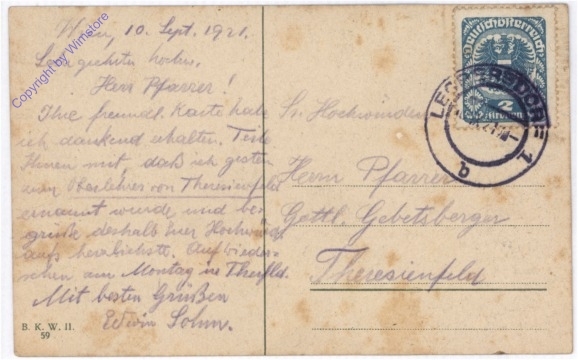 Wien, 10. Sept. 1921.
Sehr geehrter hochw.
Herr Pfarrer!
Ihre freundl. Karte habe
ich dankend erhalten. Teile
Ihnen mit, daß ich gestern
zum Oberlehrer von Theresienfeld
ernannt wurde und be-
grüße deshalb Euer Hochwürden
aufs herzlichste. Auf Wieder-
sehen am Montag in Thersfld.
Mit besten Grüßen
Edwin Sohm.
B. K. W. II.
59
Sr. Hochwürden
Herrn Pfarrer
Gottl. Gebetsberger
Theresienfeld
Deutschösterreich
2
Kronen
LEOPOLDSDORF 1
b
Copyright by Wimstore